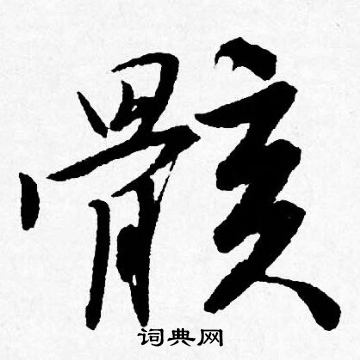 骸
词典网